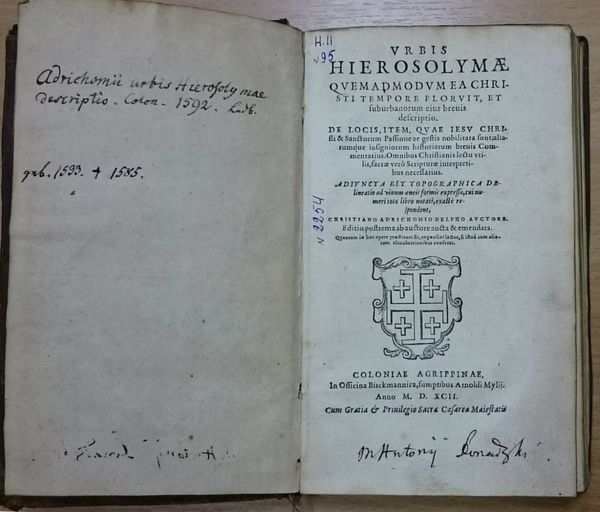 Adrichomii urbis Hierosolymae
descriptio. Colon. 1592. Lab.
nat. 1533. + 1585.
H.II
N 95
VRBIS
HIEROSOLYMÆ
QVEMADMODVM EA CHRI-
STI TEMPORE FLORVIT, ET
suburbanorum eius breuis
descriptio.
DE LOCIS, ITEM, QVAE IESV CHRI-
sti & Sanctorum Passione ac gestis nobilitata sunt, alia-
rumque insignorum historiarum breuis Com-
mentarius. Omnibus Christianis lectu vti-
lis, sacræ verò Scripturæ interpreti-
bus necessarius.
ADIVNCTA EST TOPOGRAPHICA DE-
lineatio ad viuum æneis formis expressa, cui nu-
meri toto libro notati, exactè re-
spondent,
CHRISTIANO ADRICHOMIO DELPHO AVCTORE.
Editio postrema ab auctore aucta & emendata.
N 2254
COLONIAE AGRIPPINAE,
In Officina Birckmannica, sumptibus Arnoldi Mylij.
Anno M. D. XCII.
Cum Gratia & Priuilegio Sacræ Cæsareæ Maiestatis
M Antonij